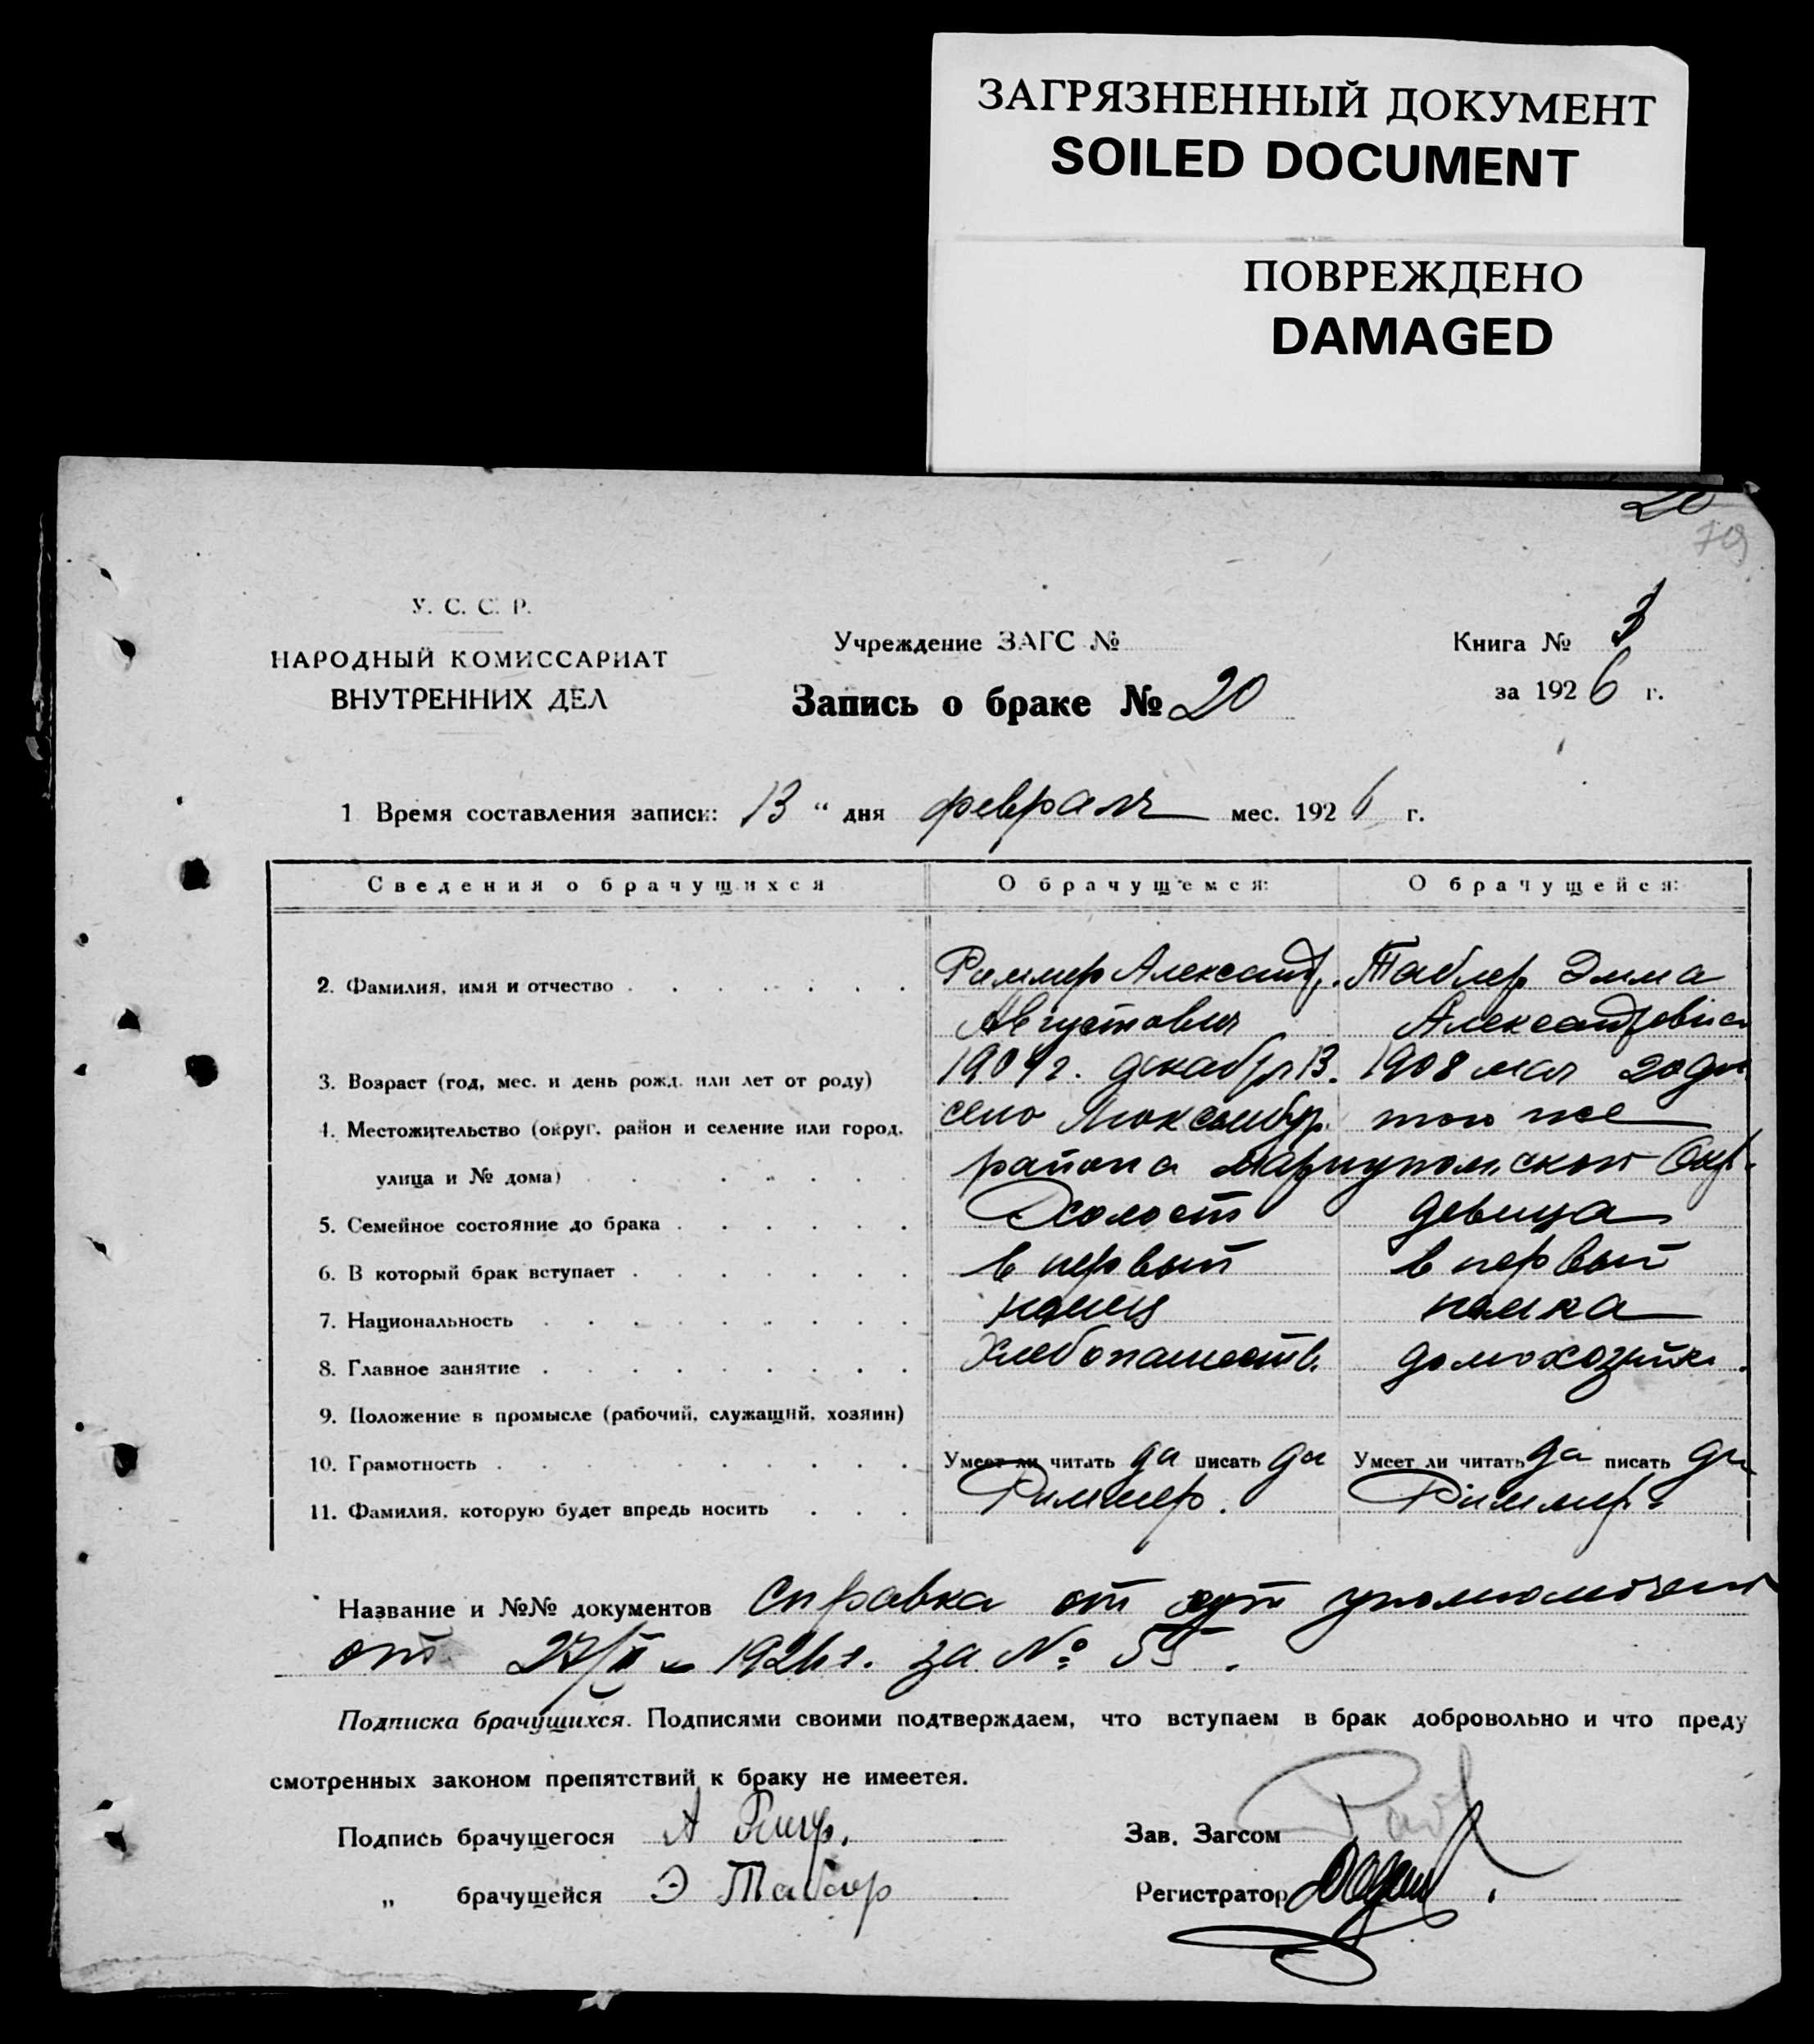 ЗАГРЯЗНЕННЫЙ ДОКУМЕНТ
SOILED DOCUMENT
ПОВРЕЖДЕНО
DAMAGED
20
79
У. С. С. Р.
НАРОДНЫЙ КОМИССАРИАТ
ВНУТРЕННИХ ДЕЛ
Учреждение ЗАГС №
Запись о браке № 20
Книга № 3
за 1926 г.
1 Время составления записи: 13 “ дня февраля мес. 1926 г.
Сведения о брачущихся О брачущемся: О брачущейся:
2. Фамилия, имя и отчество Риммер Александр. Таблер Эмма
Августович Александровна
3. Возраст (год, мес. и день рожд. или лет от роду) 1904 г. декабря 13. 1908 мая 20 дня
4. Местожительство (округ, район и селение или город, село Люксембур. того же
улица и № дома) района Мариупольской Окр.
5. Семейное состояние до брака Холост девица
6. В который брак вступает в первый в первый
7. Национальность немец немка
8. Главное занятие Хлебопашеств. домохозяйк.
9. Положение в промысле (рабочий, служащий, хозяин)
10. Грамотность Умеет ли читать да писать да Умеет ли читать да писать да
11. Фамилия, которую будет впредь носить Риммер. Риммер.
Название и №№ документов Справка от уполномочен
от 27/II 1926 г. за № 55.
Подписка брачущихся. Подписями своими подтверждаем, что вступаем в брак добровольно и что преду
смотренных законом препятствий к браку не имеется.
Подпись брачущегося АРимер.
Зав. Загсом
„ брачущейся Э Таблер
Регистратор